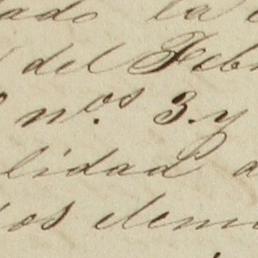 ado la
del Febr
n.os 3. y
lidad a
os dem